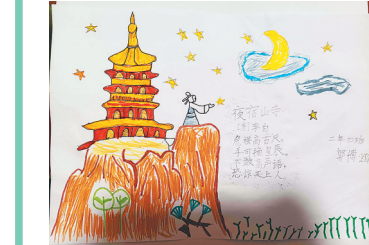 夜宿山寺
[唐]李白
危楼高百尺,
手可摘星辰。
不敢高声语,
恐惊天上人。
二年